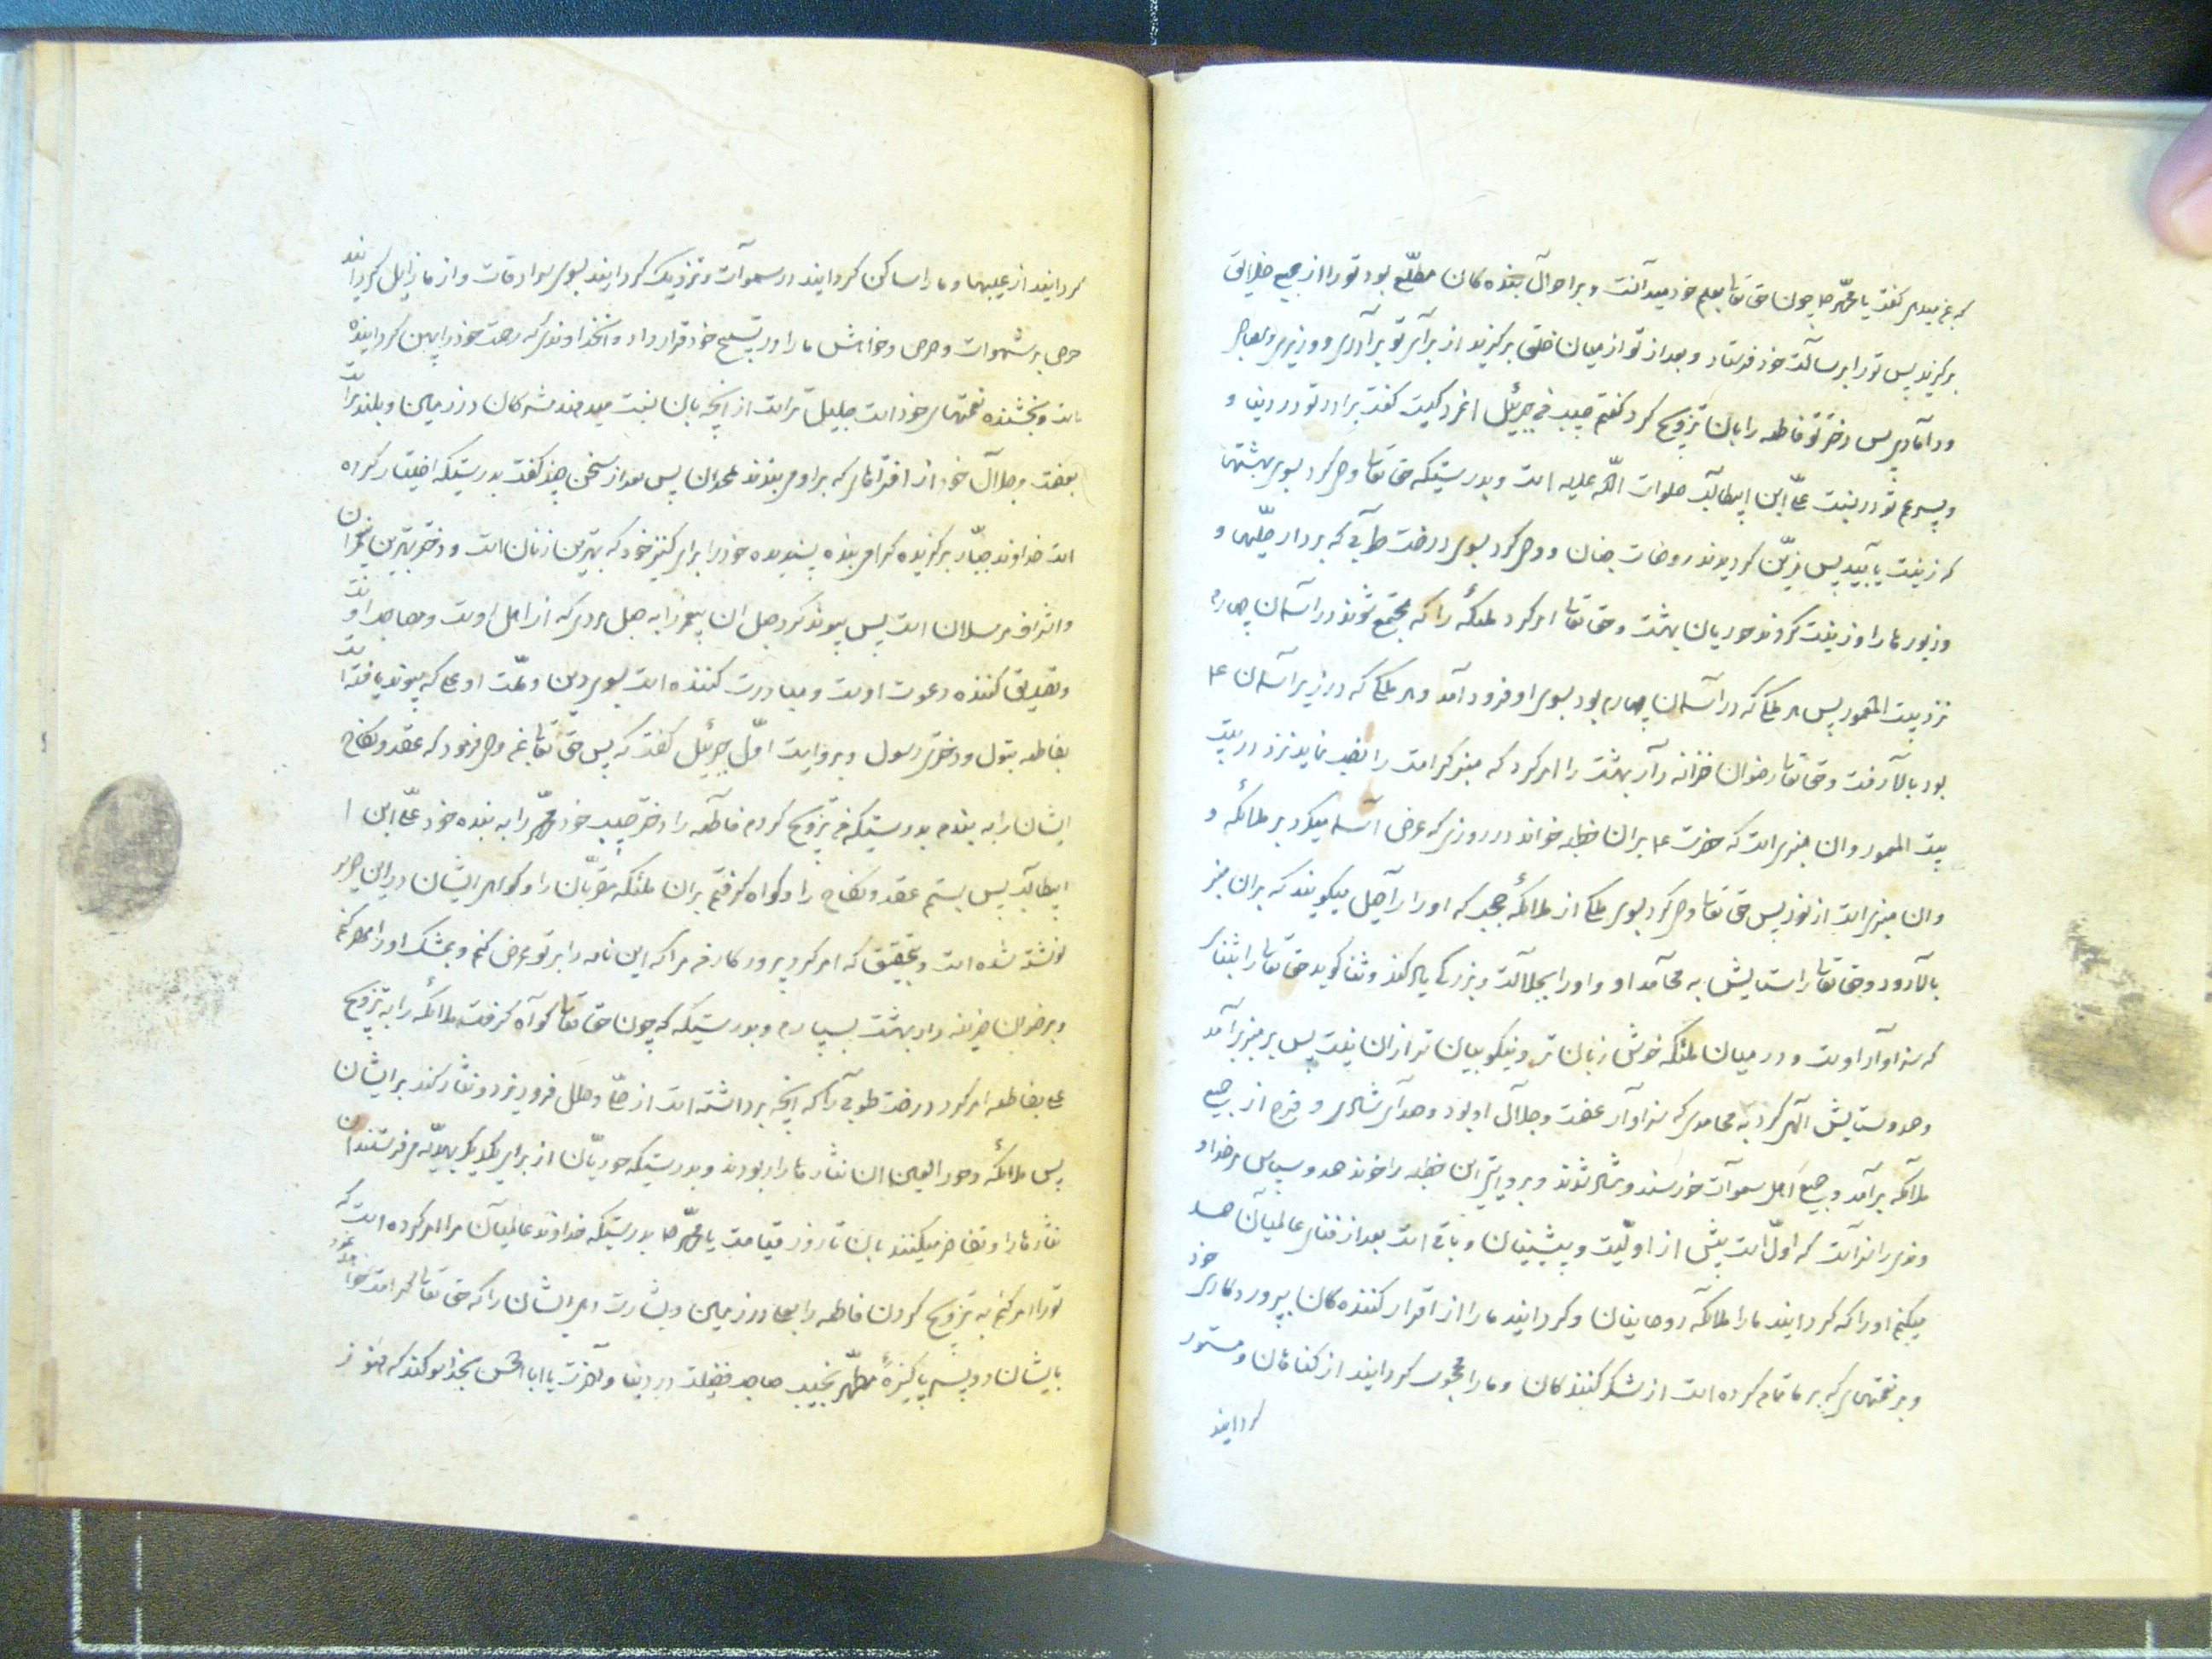 که بمن میدهی گفت یا محمد ص چون حق تعالی بعلم خود میدانست و بر احوال بنده کان مطلع بود تو را از جمیع خلایق
برگزید پس تو را برسالت خود فرستاد و بعد از تو از میان خلق برگزید از برای تو برادری و وزیری و مصاحبی
و دامادی پس دختر تو فاطمه را بان تزویج کرد گفتم حبیب من جبرئیل انمرد کیست گفت برادر تو در دنیا و
و پسر عم تو در نسبت علی ابن ابیطالب صلوات الله علیه است و بدرستیکه حق تعالی وحی کرد بسوی بهشتها
که زینت یابید پس مزین گردیدند روضات جنان و وحی کرد بسوی درخت طوبی که بردار حلیها و
و زیورها را و زینت کردند حوریان بهشت و حق تعالی امر کرد ملئکه را که مجتمع شوند در آسمان چهارم
نزد بیت المعمور پس هر ملکی که در آسمان چهارم بود بسوی او فرود آمد و هر ملکی که در زیر آسمان ۴
بود بالا رفت و حق تعالی رضوان خزانه دار بهشت را امر کرد که منبر کرامت را نصب نماید نزد در بیت
بیت المعمور و ان منبری است که حضرت ۴ بران خطبه خواند در روزی که عرض اسماء میکرد بر ملائکه و
وان منبری است از نور پس حق تعالی وحی کرد بسوی ملکی از ملائکه حجب که او را راحیل میگویند که بران منبر
بالا رود و حق تعالی را ستایش به محامد او و او را بجلالت و بزرگی یاد کند و ثنا گوید حق تعالی را بثنائی
که سزاوار اوست و در میان ملئکه خوش زبان تر و نیکو بیان تر از ان نیست پس بر منبر برآمد
و حمد و ستایش الهی کرد به محامدی که سزاوار عظمت و جلال او بود و صدای شادی و فرح از جمیع
ملائکه برآمد و جمیع اهل سموات خورسند و شاد شدند و بروایتی این خطبه را خواند حمد و سپاس مر خدا
وندی را سزاست که اول است پیش از اولیت و پیشینیان و باقی است بعد از فنای عالمیان حمد
میکنم او را که گردانید ما را ملائکه روحانیان و گردانید ما را از اقرار کننده کان بپروردگاری خود
و بر نعمتهای که بر ما تمام کرده است از شکر کننده کان و ما را محجوب گردانید از گناهان و مستور
گردانید
گردانید از عیبها و ما را ساکن گردانید در سموات و نزدیک گردانید بسوی سرادقات و از ما زایل گردانید
حرص بر شهوات و حرص و خواهش ما را در تسبیح خود قرار داد و انخداوندی که رحمت خود را پهن گرداننده
است و بخشنده نعمتهای خود است جلیل تر است از آنچه بان نسبت میدهند مشرکان در زمین و بلندتر است
بعظمت و جلال خود از افتراهائی که بر او می بندند ملحدان پس بعد از سخن چند گفت بدرستیکه اختیار کرده
است خداوند جبار برگزیده گرامی بنده پسندیده خود را برای کنیز خود که بهترین زنان است و دختر بهترین پیغمبران
و اشراف مرسلان است پس پیوند کرد حبل ان پیغمبر را به حبل مردی که از اهل اوست و مصاحب اوست
و تصدیق کننده دعوت اوست و مبادرت کننده است بسوی دین و ملت او علی که پیوند یافته است
بفاطمه بتول و دختر رسول و بروایت اول جبرئیل گفت که پس حق تعالی بمن وحی فرمود که عقد و نکاح
ایشان را به بندم بدرستیکه من تزویج کردم فاطمه را دختر حبیب خود محمد را به بنده خود علی ابن ا
ابیطالب پس بستم عقد و نکاح را و گواه گرفتم بران ملئکه مقربان را و گواهی ایشان در این حریر
نوشته شده است و بتحقیق که امر کرد پروردگار من مرا که این نامه را بر تو عرض کنم و بمشک او را مهر کنم
و برضوان خزینه دار بهشت بسپارم و بدرستیکه که چون حق تعالی گواه گرفت ملائکه را به تزویج
علی بفاطمه امر کرد درخت طوبی را که آنچه برداشته است از حلی و حلل فرو ریزد و نثار کند بر ایشان
پس ملائکه و حور العین ان نثارها را ربودند و بدرستیکه حوریان از برای یکدیگر بهدیه میفرستند ان
نثارها را و تفاخر میکنند بان تا روز قیامت یا محمد ص بدرستیکه خداوند عالمیان مرا امر کرده است که
تو را امر کنم به تزویج کردن فاطمه را بعلی در زمین و بشارت دهی ایشان را که حق تعالی کرامت خواهد نمود
بایشان دو پسر پاکیزهٔ مطهر نجیب صاحب فضیلت در دنیا و آخرت یا ابا الحسن بخدا سوگند که هنوز